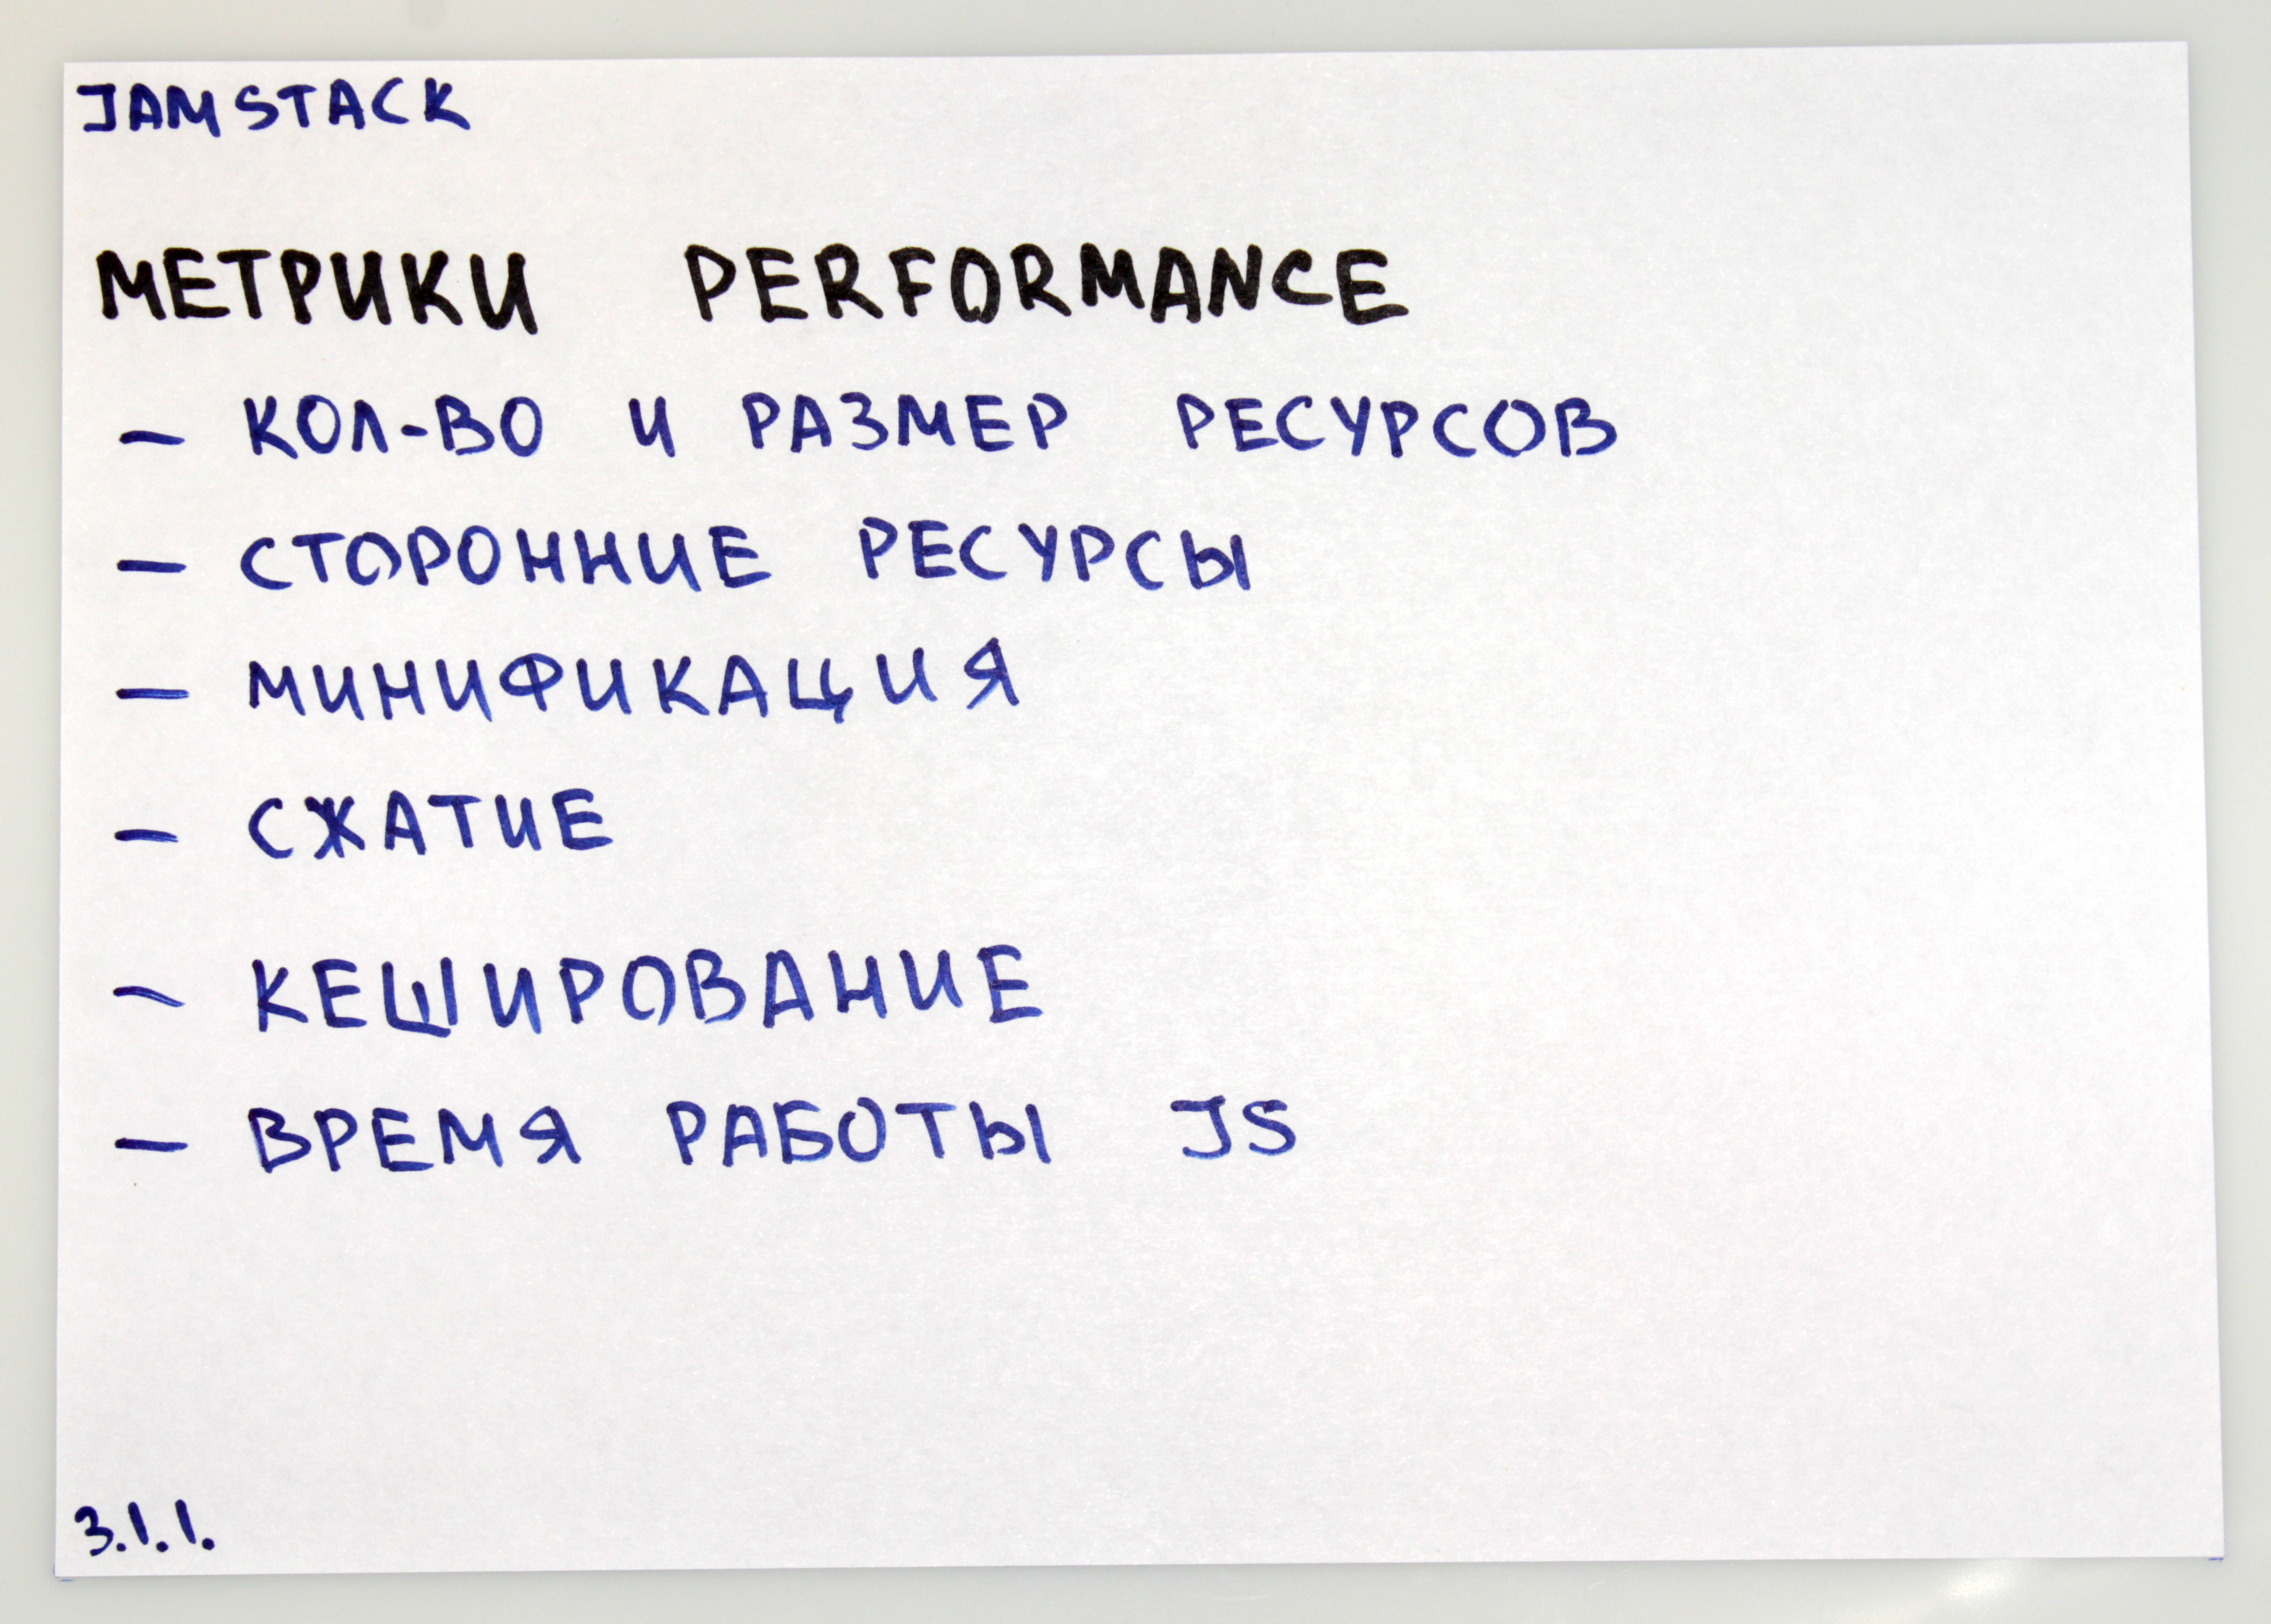 JAMSTACK
МЕТРИКИ PERFORMANCE
- КОЛ-ВО И РАЗМЕР РЕСУРСОВ
- СТОРОННИЕ РЕСУРСЫ
- МИНИФИКАЦИЯ
- СЖАТИЕ
- КЕШИРОВАНИЕ
- ВРЕМЯ РАБОТЫ JS
3.1.1.